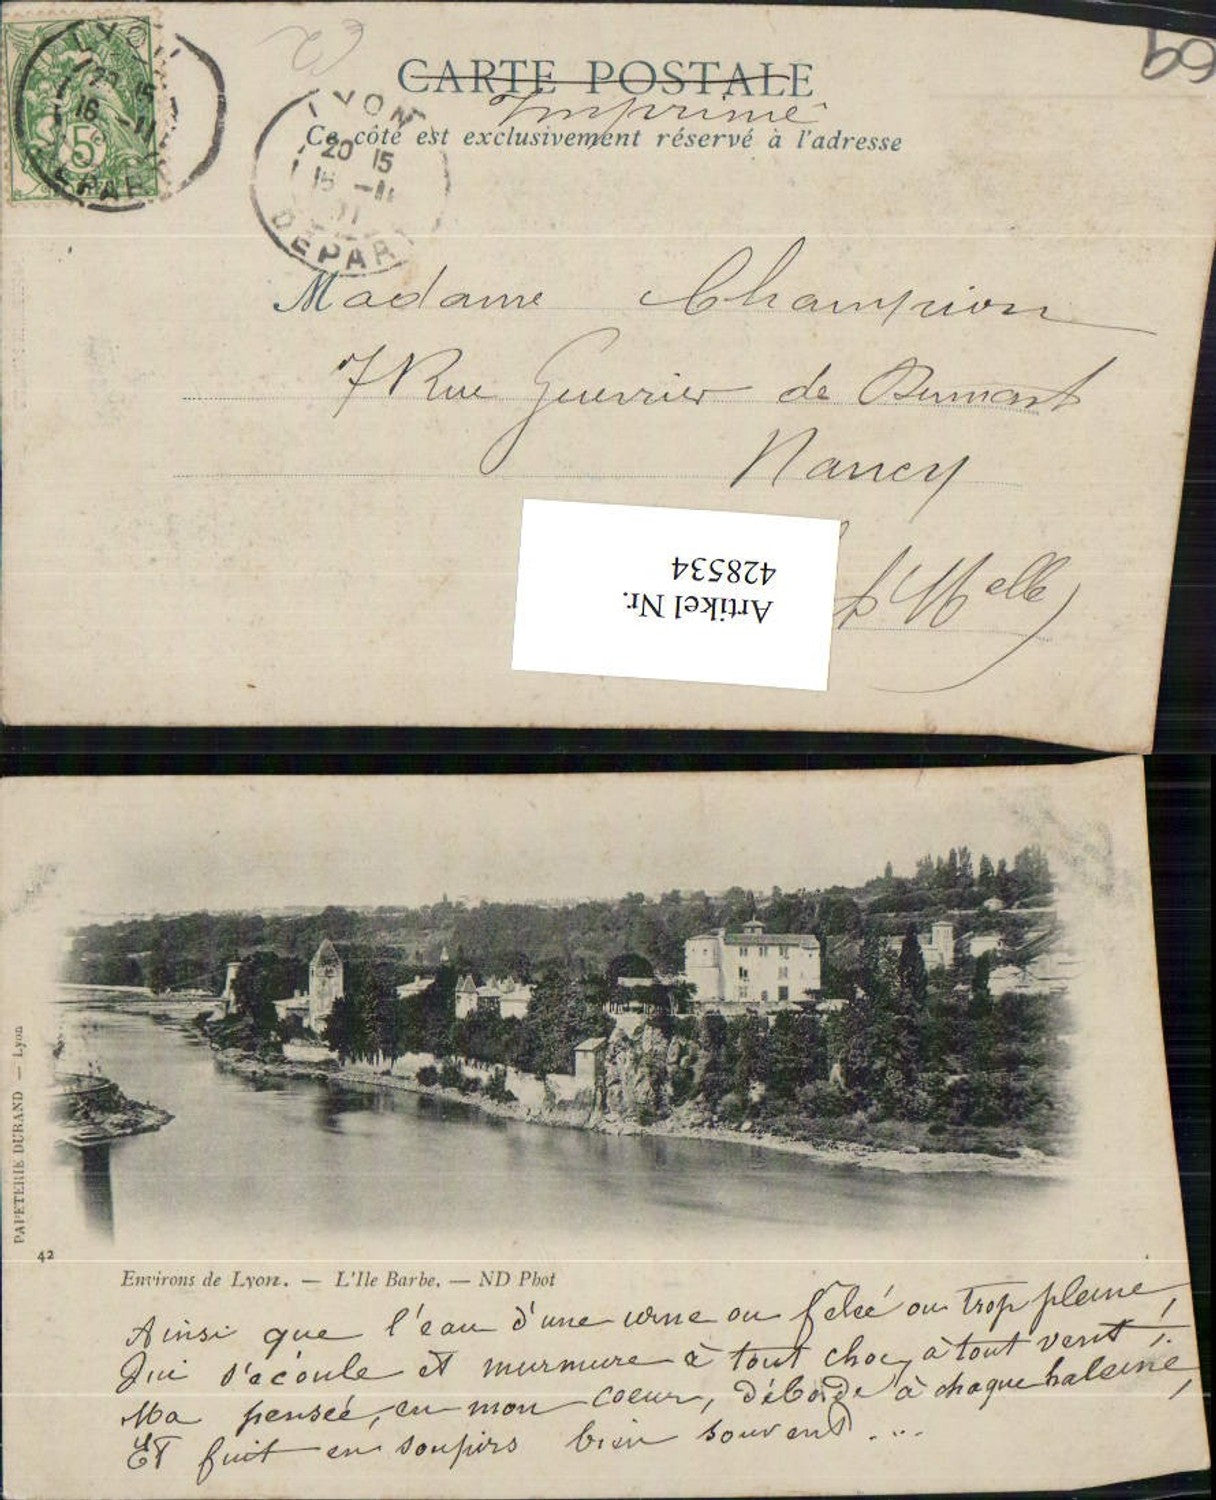 LYON
20 15
16 -11
5c
DEPART
69
CARTE POSTALE
Imprimé
Ce côté est exclusivement réservé à l'adresse
LYON
20 15
16 -11
01
DEPAR
Madame Champion
7 Rue Guerrier de Dumast
Nancy
Mthe Mlle)
Artikel Nr.
428534
PAPETERIE DURAND — Lyon
42
Environs de Lyon. — L'Ile Barbe. — ND Phot
Ainsi que l'eau d'une urne ou fêlée ou trop pleine,
Qui s'écoule et murmure à tout choc, à tout vent;
Ma pensée, en mon coeur, déborde à chaque haleine,
Et fuit en soupirs bien souvent...